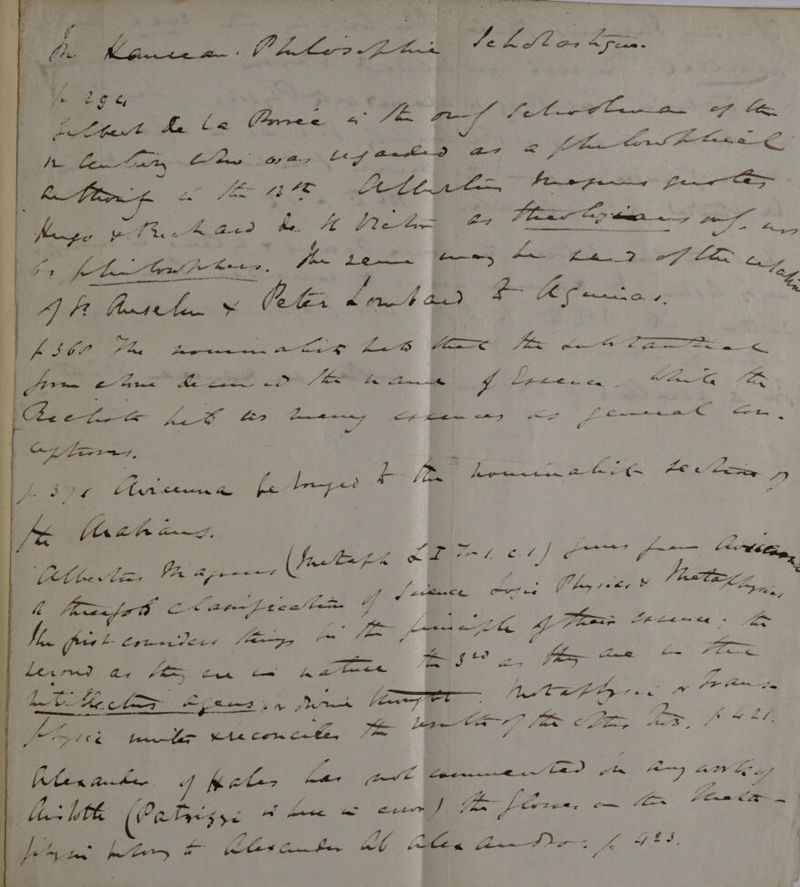 In Haureau. Philosophie Scholastique.
p 294
Gilbert de la Porrée is the only Schoolman of the
12 Century who was regarded as a philosophical
authority in the 13th. Albertus Magnus quotes
Hugo & Richard de St Victor as theologians only, not
as philosophers. The same may be said of the relation
of St Anselm & Peter Lombard to Aquinas.
p 368 The nominalists held that the substantial
form alone deserved the name of Essence. While the
Realists held as many essences as general con-
ceptions.
p 370 Avicenna belonged to the nominalist section of
the Arabians.
Albertus Magnus (Metaph L I Tr 1. c. 1) gives from Avicenna
a threefold classification of Science Logic Physics & Metaphysics
The first considers things in the principle of their essence; the
second as they are in nature the 3rd as they are in the
intellectus agens, or divine thought. Metaphysic or Trans-
physic unites & reconciles the results of the other two. p 421.
Alexander of Hales has not commented on any work of
Aristotle (Patrizzi is here in error). The glosses on the Meta-
physic belong to Alexander ab Alexandro. p 423.